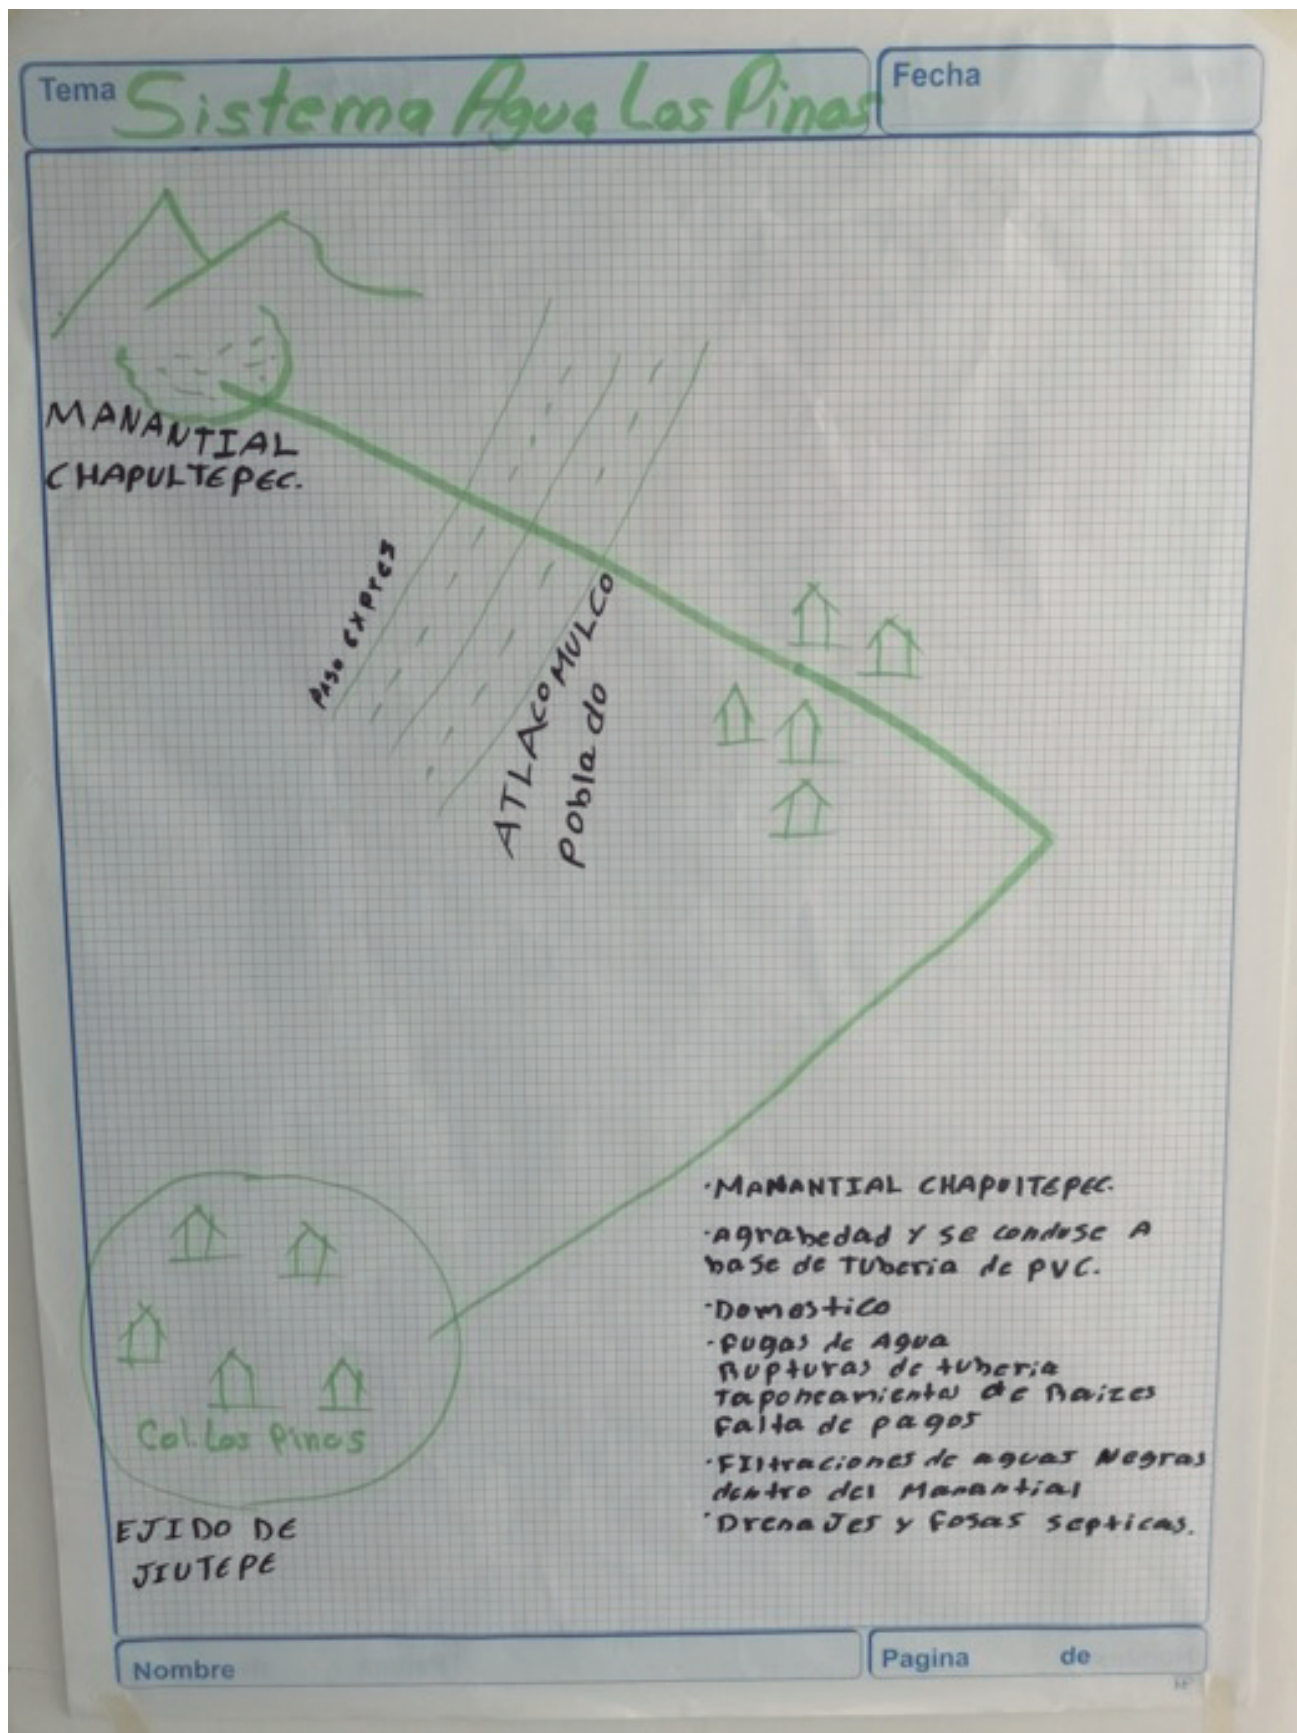 Tema
Sistema Agua Los Pinos
Fecha
MANANTIAL
CHAPULTEPEC.
PASO EXPRES
ATLACOMULCO
Poblado
·MANANTIAL CHAPUlTEPEC.
·Agrabedad y se conduse A
base de Tuberia de PVC.
·Domestico
·fugas de Agua
Rupturas de tuberia
Taponeamientos de Raizes
Falta de pagos
·FIltraciones de aguas Negras
dentro del Manantial
·DrenaJes y fosas septicas.
Col. Los Pinos
EJIDO DE
JIUTEPE
Nombre
Pagina de